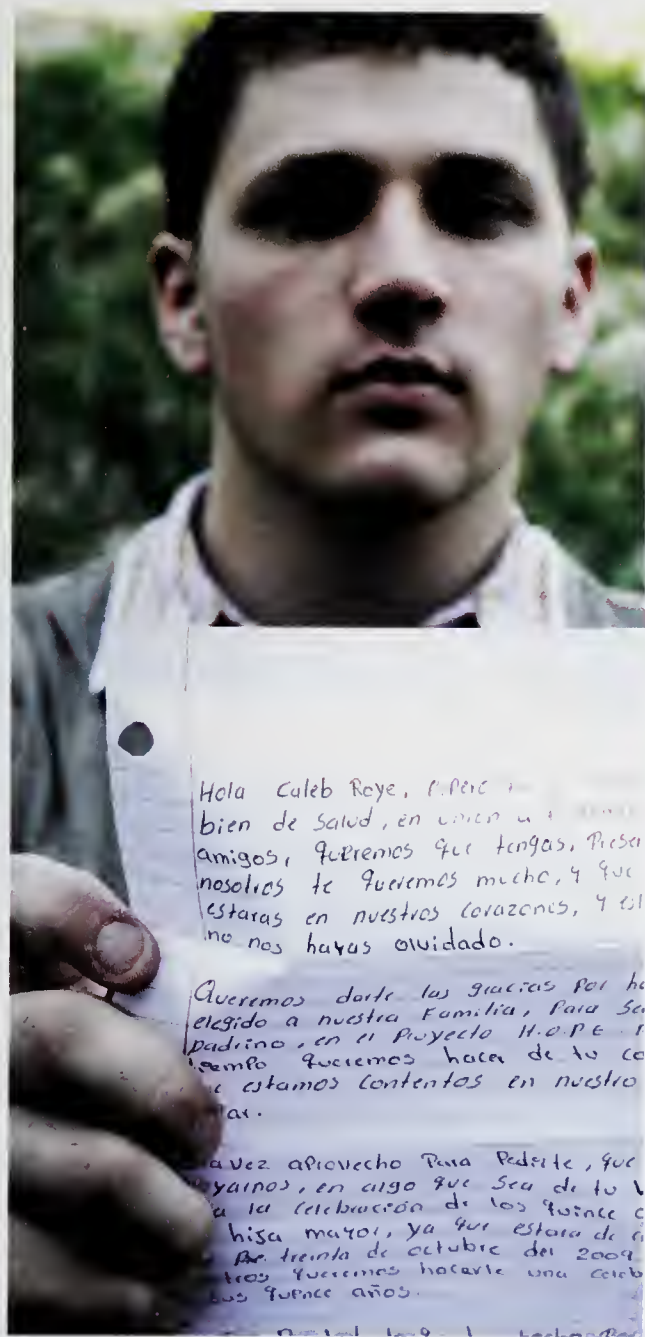 Hola Caleb Roye,
bien de Salud, en
amigos, queremos que tengas, Prese
nosotros te queremos mucho, y que
estaras en nuestros corazones, y es
no nos hayas olvidado.
Queremos darte las gracias Por ha
elegido a nuestra Familia, Para Se
padrino, en el Proyecto H.O.P.E.
tiempo queremos hacer de tu co
estamos contentos en nuestro
ar.
a vez aprovecho Para Pedirte, que
oyarnos, en algo que sea de tu
a la celebración de los quince
hija mayor, ya que estara de
treinta de octubre del 2009
tros queremos hacerle una celeb
sus quince años.